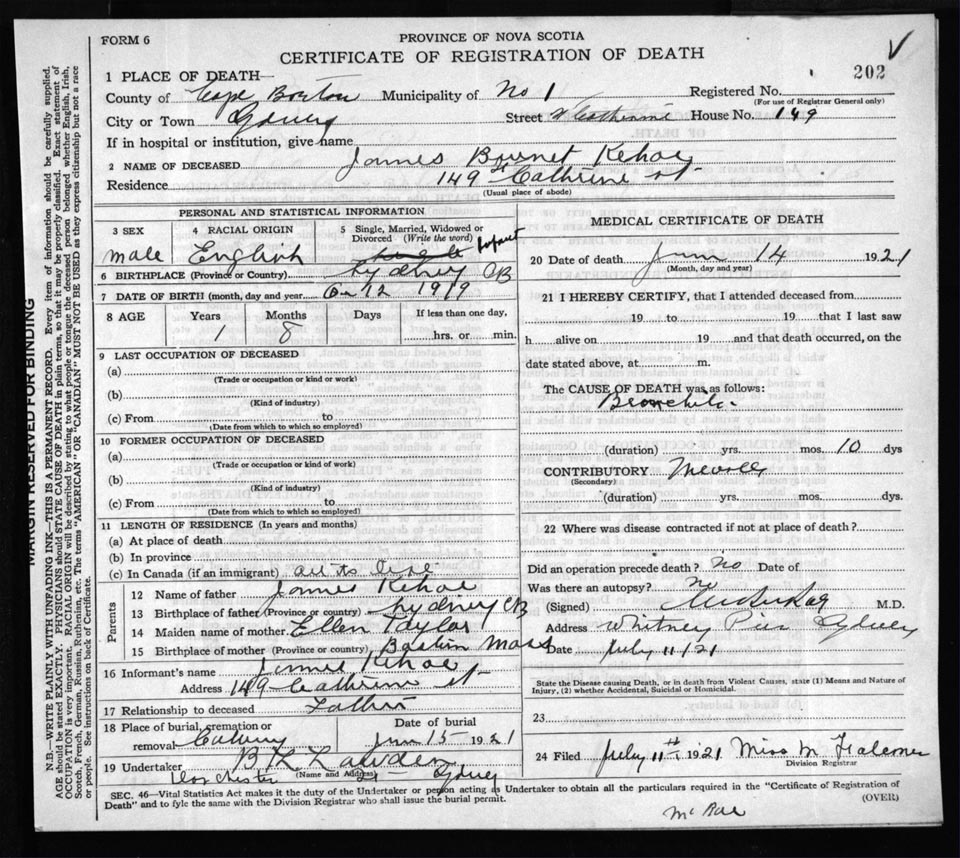 FORM 6
PROVINCE OF NOVA SCOTIA
CERTIFICATE OF REGISTRATION OF DEATH
202
1 PLACE OF DEATH—
County of Cape Breton Municipality of No 1 Registered No.
(For use of Registrar General only)
City or Town Sydney Street Catherine House No. 149
If in hospital or institution, give name
2 NAME OF DECEASED James Burnet Kehoe
Residence 149 Catherine St
(Usual place of abode)
PERSONAL AND STATISTICAL INFORMATION
3 SEX 4 RACIAL ORIGIN 5 Single, Married, Widowed or Divorced (Write the word)
male English Single Infant
6 BIRTHPLACE (Province or Country) Sydney CB
7 DATE OF BIRTH (month, day and year) 12 1919
8 AGE Years Months Days If less than one day,
1 8 hrs. or min.
9 LAST OCCUPATION OF DECEASED
(a)
(Trade or occupation or kind or work)
(b)
(Kind of industry)
(c) From to
(Date from which to which so employed)
10 FORMER OCCUPATION OF DECEASED
(a)
(Trade or occupation or kind of work)
(b)
(Kind of industry)
(c) From to
(Date from which to which so employed)
11 LENGTH OF RESIDENCE (In years and months)
(a) At place of death
(b) In province
(c) In Canada (if an immigrant) all its life
Parents
12 Name of father James Kehoe
13 Birthplace of father (Province or country) Sydney CB
14 Maiden name of mother Ellen Taylor
15 Birthplace of mother (Province or country) Boston Mass
16 Informant's name James Kehoe
Address 149 Catherine St
17 Relationship to deceased Father
18 Place of burial, cremation or removal Calvary
Date of burial June 15 1921
19 Undertaker
(Name and Address)
Dorchester St Sydney
MEDICAL CERTIFICATE OF DEATH
20 Date of death June 14 1921
(Month, day and year)
21 I HEREBY CERTIFY, that I attended deceased from
19 to 19 that I last saw
h alive on 19 and that death occurred, on the
date stated above, at m.
The CAUSE OF DEATH was as follows:
Bronchitis
(duration) yrs. mos. 10 dys
CONTRIBUTORY Measles
(Secondary)
(duration) yrs. mos. dys.
22 Where was disease contracted if not at place of death?
Did an operation precede death? No Date of
Was there an autopsy? No
(Signed) M.D.
Address Whitney Pier Sydney
Date July 11/21
State the Disease causing Death, or in death from Violent Causes, state (1) Means and Nature of
Injury, (2) whether Accidental, Suicidal or Homicidal.
23
24 Filed July 11th 1921 Miss M Falconer
Division Registrar
SEC. 46—Vital Statistics Act makes it the duty of the Undertaker or person acting as Undertaker to obtain all the particulars required in the "Certificate of Registration of
Death" and to fyle the same with the Division Registrar who shall issue the burial permit.
(OVER)
McRae
MARGIN RESERVED FOR BINDING
N.B.—WRITE PLAINLY WITH UNFADING INK—THIS IS A PERMANENT RECORD. Every item of information should be carefully supplied.
AGE should be stated EXACTLY. PHYSICIANS should STATE CAUSE OF DEATH in plain terms, so that it may be properly classified. Exact statement of
OCCUPATION is very important. RACIAL ORIGIN will be described by stating to what people or tongue the deceased person belonged whether English, Irish,
Scotch, French, German, Russian, Ruthenian, etc. The terms "AMERICAN" OR "CANADIAN" MUST NOT BE USED as they express citizenship but not a race
or people. See instructions on back of Certificate.